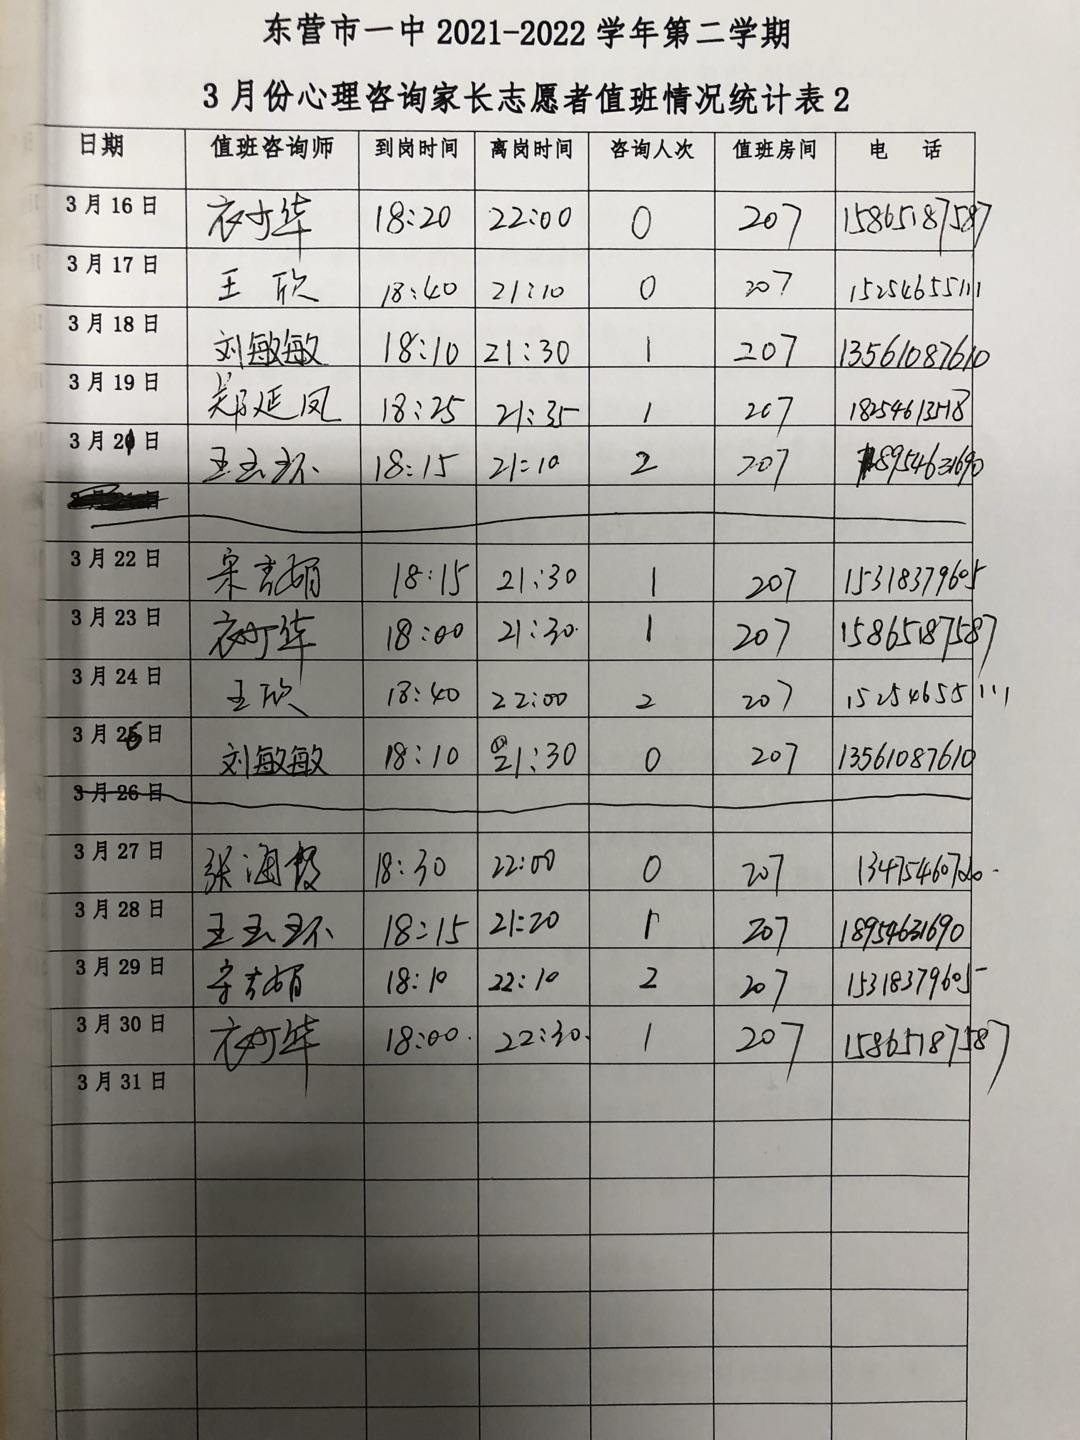 东营市一中 2021-2022 学年第二学期
3 月份心理咨询家长志愿者值班情况统计表 2
日期 值班咨询师 到岗时间 离岗时间 咨询人次 值班房间 电 话
3 月 16 日 衣少华 18:20 22:00 0 207 15865187587
3 月 17 日 王欣 18:40 21:10 0 207 15254655111
3 月 18 日 刘敏敏 18:10 21:30 1 207 13561087610
3 月 19 日 郑延凤 18:25 21:35 1 207
3 月 21 日 王玉环 18:15 21:10 2 207 18954631690
3 月 22 日 宋吉娟 18:15 21:30 1 207 15318379605
3 月 23 日 衣少华 18:00 21:30 1 207 15865187587
3 月 24 日 王欣 18:40 22:00 2 207 15254655111
3 月 日 刘敏敏 18:10 21:30 0 207 13561087610
3 月 26 日
3 月 27 日 张海霞 18:30 22:00 0 207
3 月 28 日 王玉环 18:15 21:20 1 207 18954631690
3 月 29 日 宋吉娟 18:10 22:10 2 207 15318379605
3 月 30 日 衣少华 18:00 22:30 1 207 15865187587
3 月 31 日